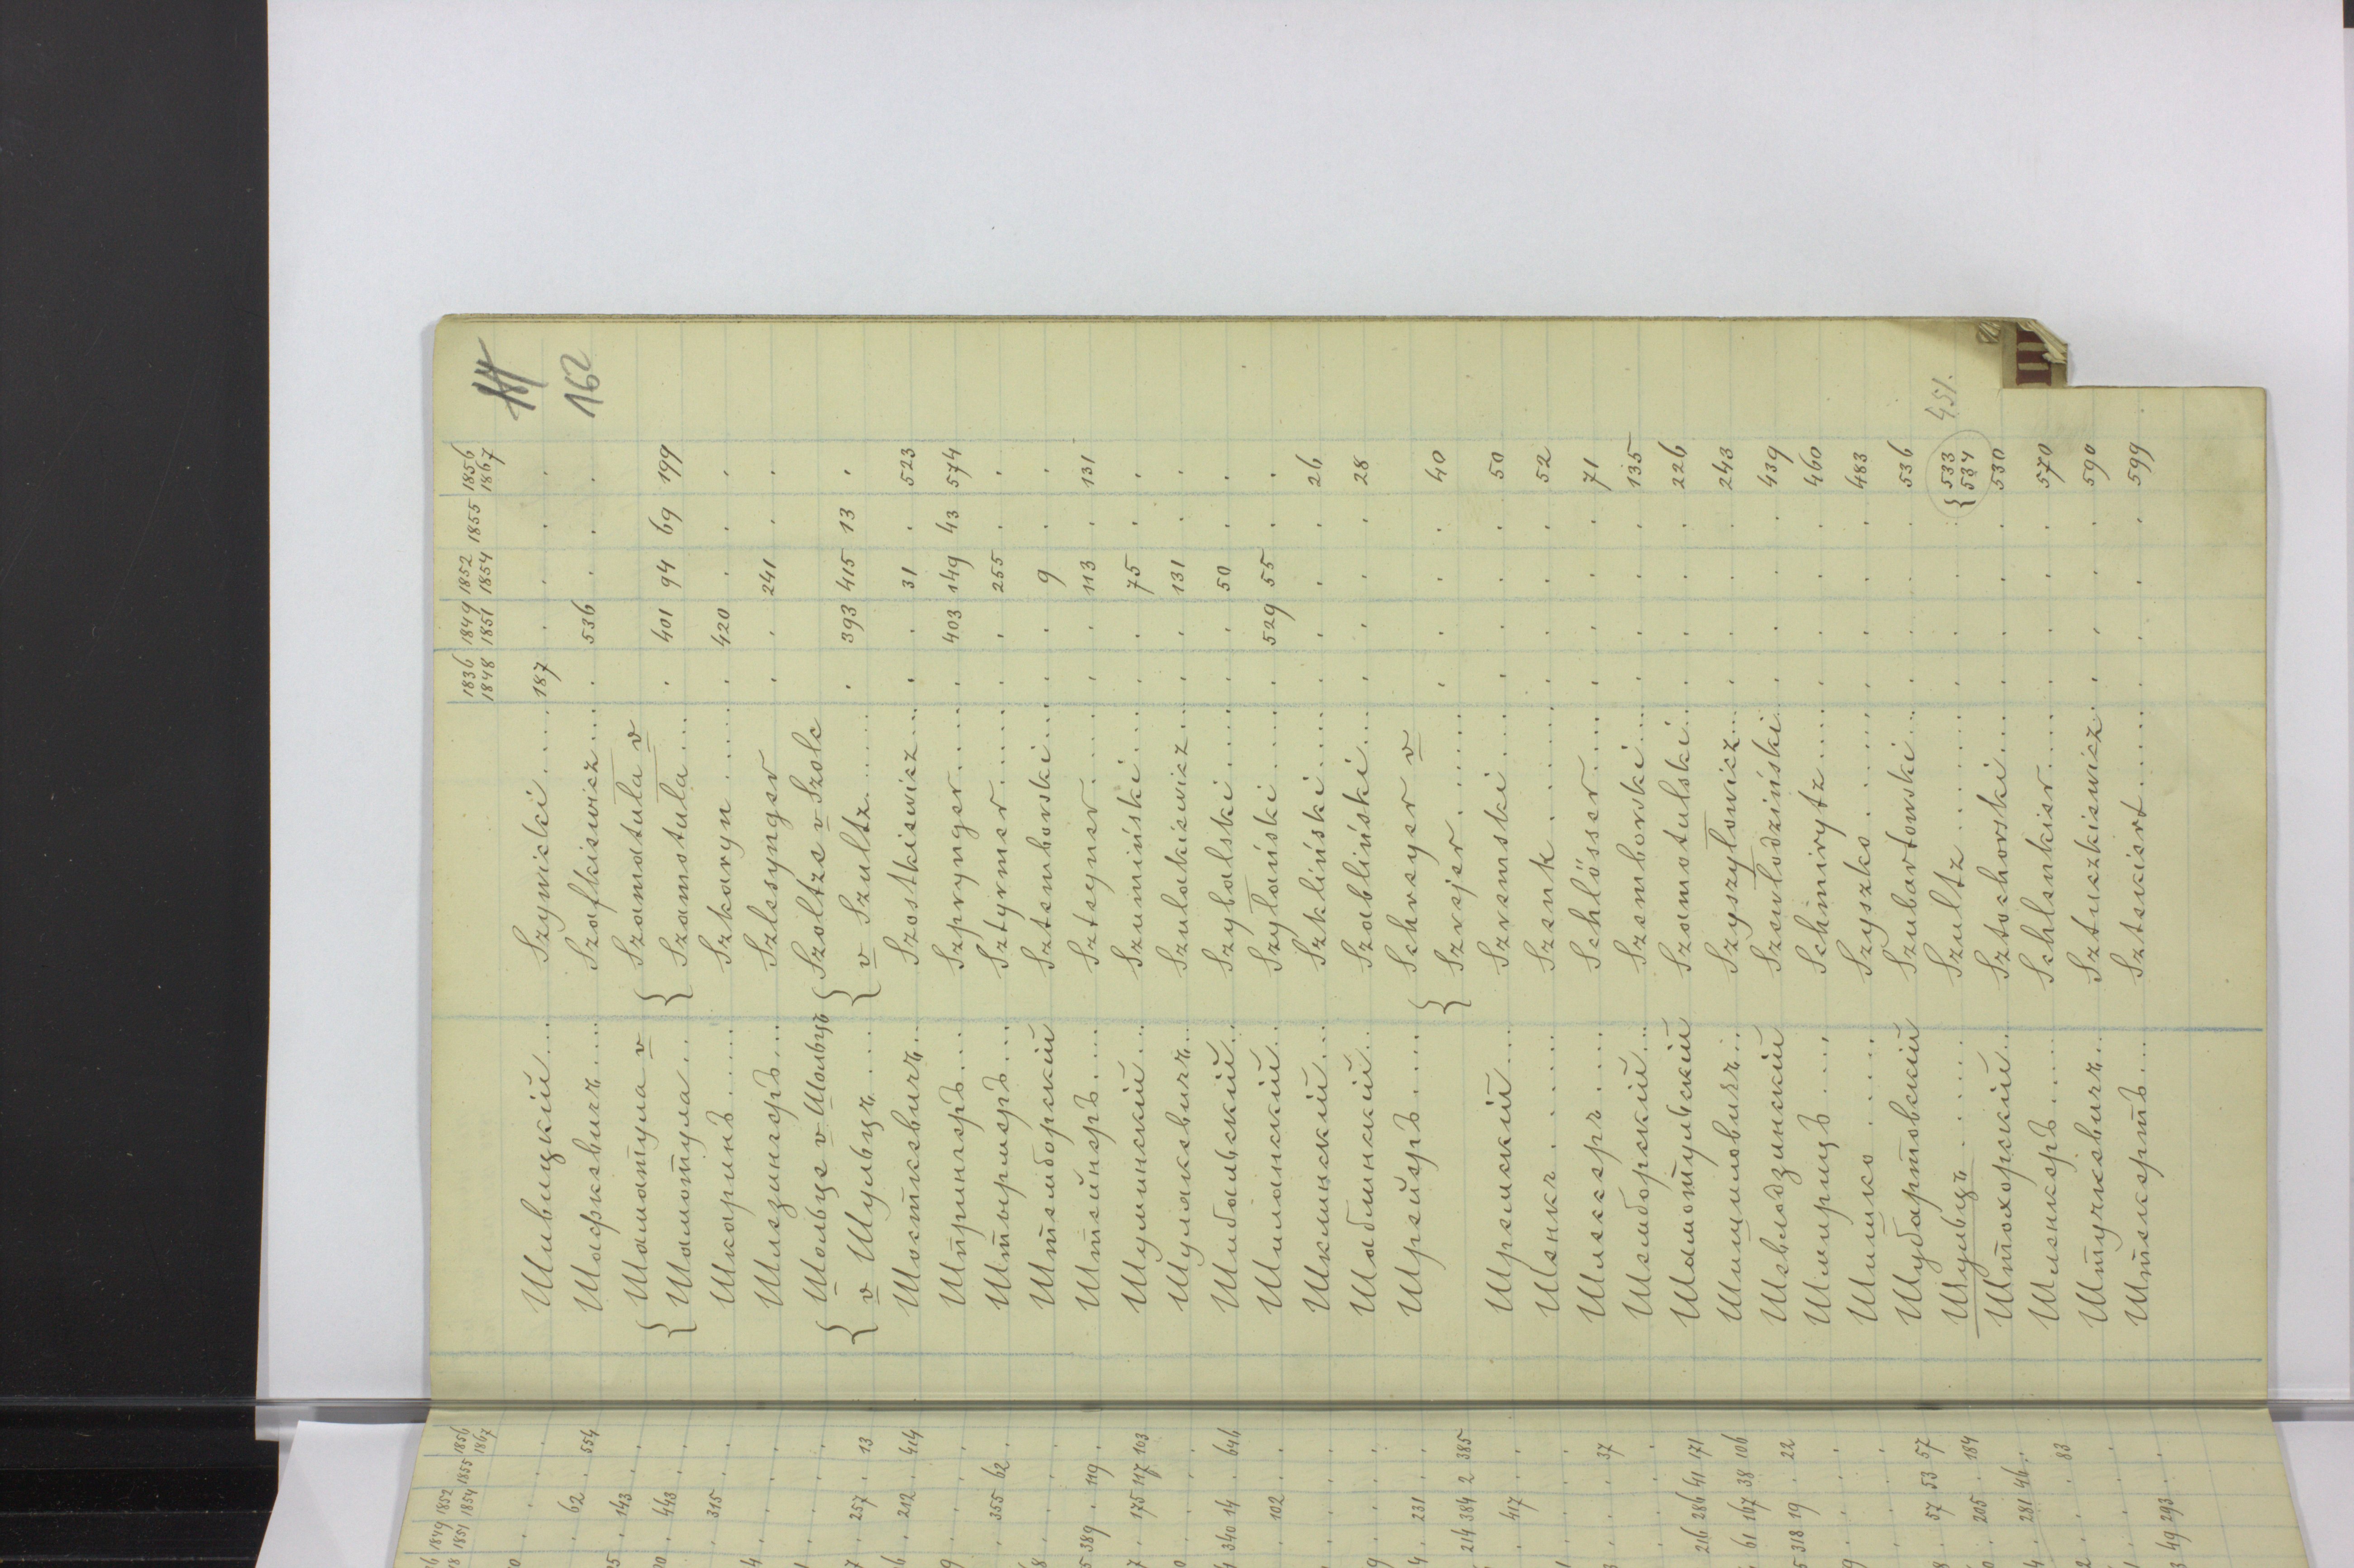 114
162
1836 1849 1852 1855 1856
1848 1851 1854 1867
Шивицкій.... Szywicki..... 187 . . . .
Шафкевичъ.... Szafkiewicz... . 536 . . .
{ Шаматула v { Szamatuła v
Шамотула... Szamotuła... . 401 94 69 199
Шкаринъ...... Szkaryn...... . 420 . . .
Шлезингеръ... Szlesynger . . 241 . .
{ Шольце v Шольцъ { Szoltze v Szolc
v Шульцъ..... v Szultz...... . 393 415 13 .
Шосткевичъ... Szostkiewicz... . . 31 . 523
Шпрингеръ.... Szprynger..... . 403 149 43 574
Штырмеръ.... Sztyrmer..... . . 255 . .
Штемборскій Sztemborski... . . 9 . .
Штейнеръ..... Szteyner...... . . 113 . 131
Шуминскій... Szumiński.... . . 75 . .
Шулакевичъ... Szulakiewicz... . . 131 . .
Шибальскій.. Szybalski..... . . 50 . .
Шиланскій... Szylański..... . 529 55 . .
Шклинскій... Szkliński..... . . . . 26
Шаблинскій.. Szabliński.... . . . . 28
Шрейеръ..... { Schreyer v
Szrejer...... . . . . 40
Шремскій.... Szremski..... . . . . 50
Шенкъ....... Szenk....... . . . . 52
Шлессеръ.... Schlösser..... . . . . 71
Шемборскій... Szemborski... . . . . 135
Шамотульскій Szamotulski.. . . . . 226
Шишиловичъ... Szyszyłowicz... . . . . 243
Шевлодзинскій Szewłodziński. . . . . 439
Шмирицъ..... Schmirytz..... . . . . 460
Шишко...... Szyszko...... . . . . 483
Шубартовскій Szubartowski.. . . . . 536
Шульцъ...... Szultz....... . . . { 533 534 451.
Штохорскій.. Sztochorski... . . . . 530
Шленкеръ.... Schlenkier..... . . . . 570
Штучкевичъ... Sztuczkiewicz. . . . . 590
Штекертъ.... Sztekiert...... . . . . 599
1849 1852 1855 1856
1851 1854 1867
62 . 554
143 . .
443 . .
315 . .
257 . 13
212 . 414
355 62 .
389 . 119 .
175 117 103
340 14 . 646
102 . .
231 . .
214 384 2 385
417 . .
37
216 286 41 171
61 167 38 106
318 19 . 22
57 53 57
205 . 184
281 46 .
83
49 293 . .